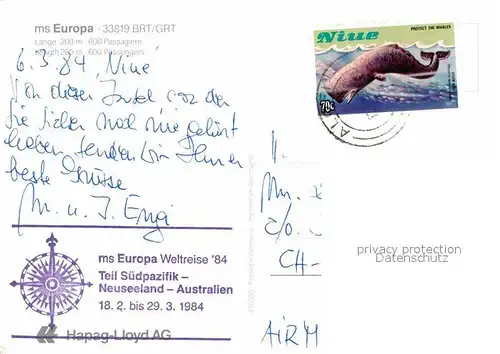 ms Europa · 33819 BRT/GRT
Länge 200 m · 600 Passagiere
Length 200 m · 600 Passengers
6.3.84 Niue
Von dieser Insel von der
Sie sicher noch nie gehört
haben senden wir Ihnen
beste Grüsse
M. u. J. Engi
ms Europa Weltreise '84
Teil Südpazifik –
Neuseeland – Australien
18. 2. bis 29. 3. 1984
Hapag-Lloyd AG
Niue
PROTECT THE WHALES
70c
AL
c/o
CH-
AIRM
privacy protection
Datenschutz